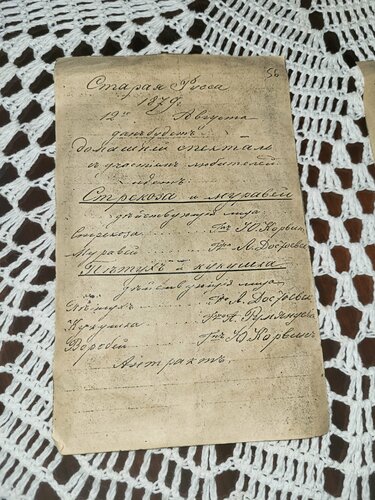 56
Старая Русса
1879г.
12го Августа
данъ будетъ
домашній спектакль
съ участіемъ любителей
идетъ
Стрекоза и муравей
дѣйствующія лица
Стрекоза Ю. Корвинъ
Муравей Л. Достоевск
Пѣтухъ и кукушка
дѣйствующія лица
Пѣтухъ Л. Достоевск
Кукушка А. Румянцева
Воробей Ю. Корвинъ
Антрактъ.